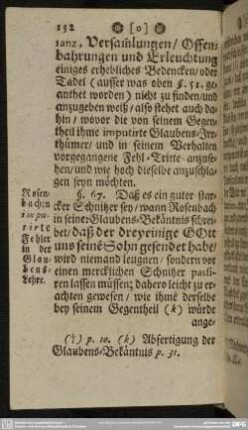 152 [o]
ranz, Versamlungen/ Offen-
bahrungen und Erleuchtung
einiges erhebliches Bedencken/ oder
Tadel (ausser was oben §. 51. ge-
anthet worden) nicht zu finden/ und
anzugeben weiß/ also stehet auch da-
hin/ wovor die von seinem Gegen-
theil ihme imputirte Glaubens-Irr-
thümer/ und in seinem Verhalten
vorgegangene Fehl-Tritte anzuse-
hen/ und wie hoch dieselbe anzuschla-
gen seyn möchten.
§. 67. Daß es ein guter star-
cker Schnitzer sey/ wann Rosenbach
in seiner Glaubens-Bekäntnis schrei-
bet/ daß der dreyeinige GOtt
uns seinē Sohn gesendet habe/
wird niemand leugnen/ sondern vor
einen mercklichen Schnitzer passi-
ren lassen müssen; dahero leicht zu er-
achten gewesen/ wie ihme derselbe
bey seinem Gegentheil (k) würde
ange-
Rosen-
bachen
impu-
tirte
Fehler
in der
Glau-
bens-
Lehre.
(i) p. 10. (k) Abfertigung der
Glaubens-Bekäntnis p. 31.